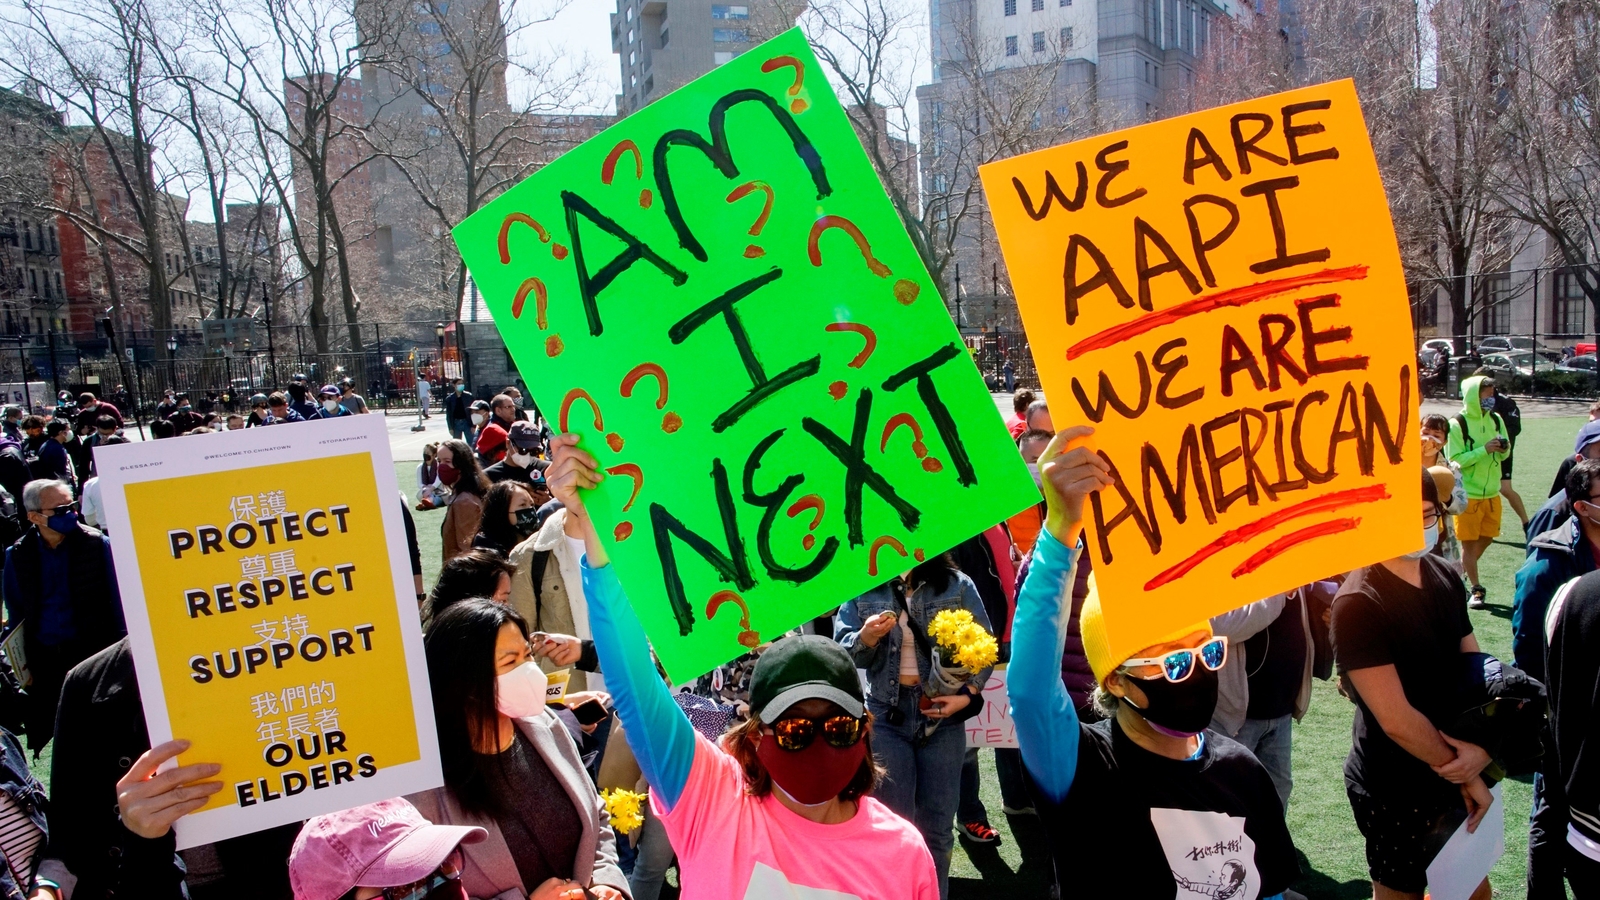 @LESBA.POF
@WELCOME.TO.CHINATOWN
#STOPAAPIHATE
保護
PROTECT
尊重
RESPECT
支持
SUPPORT
我們的
年長者
OUR
ELDERS
AM
I
NEXT
? ? ? ? ? ? ? ? ? ? ? ? ? ?
WE ARE
AAPI
WE ARE
AMERICAN
TE!